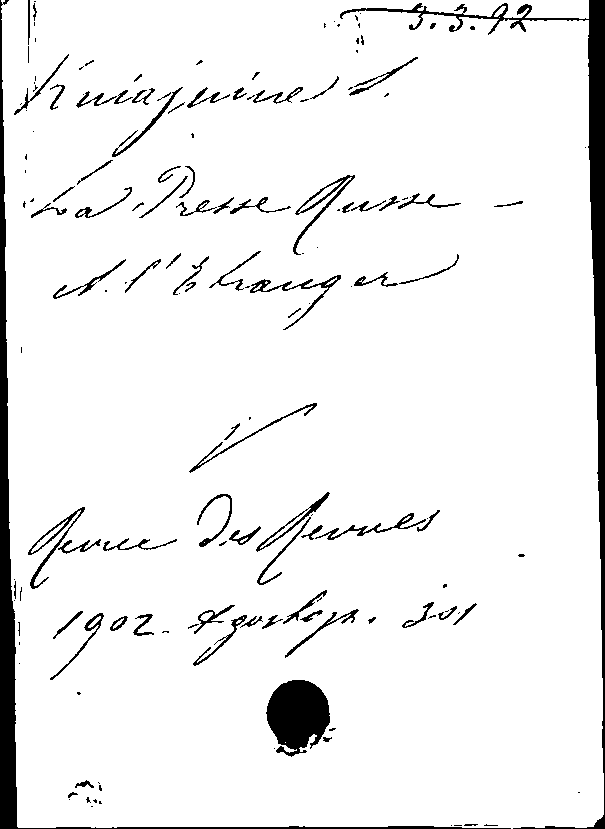 3.3.92
Kniajnine S.
La Presse Russe -
A l'Etranger
Revue des Revues
1902. Agosto p. 301